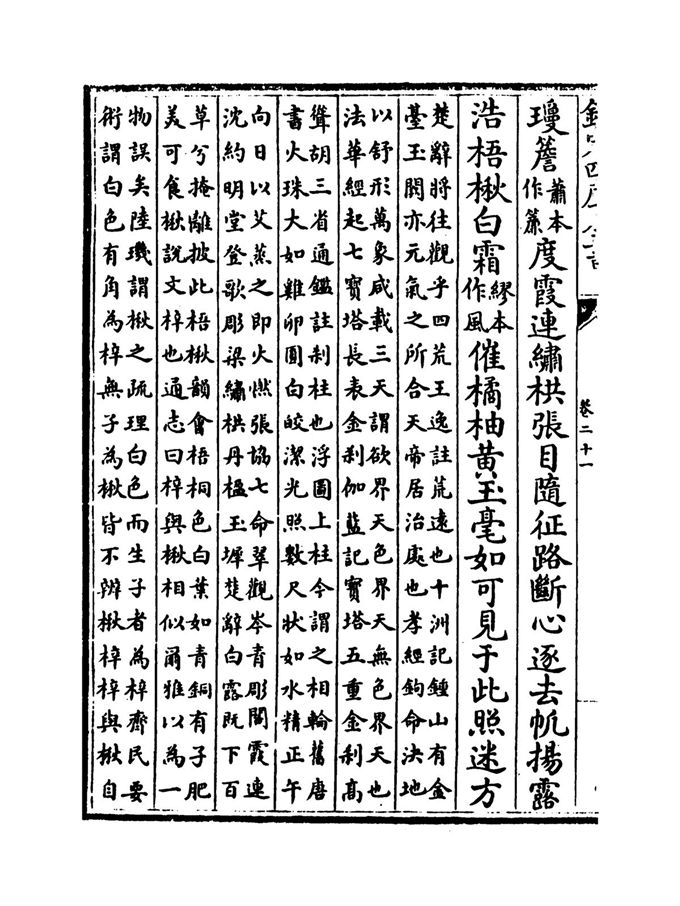 卷二十一
瓊簷蕭本作簾度霞連繡栱張目隨征路斷心逐去帆揚露
浩梧楸白霜繆本作風催橘柚黃玉毫如可見于此照迷方
楚辭將往觀乎四荒王逸註荒遠也十洲記鍾山有金
臺玉闕亦元氣之所合天帝居治處也孝經鉤命決地
以舒形萬象咸載三天謂欲界天色界天無色界天也
法華經起七寶塔長表金刹伽藍記寶塔五重金刹高
聳胡三省通鑑註刹柱也浮圖上柱今謂之相輪舊唐
書火珠大如雞卵圓白皎潔光照數尺狀如水精正午
向日以艾蒸之即火燃張協七命翠觀岑青彫閣霞連
沈約明堂登歌彫梁繡栱丹楹玉墀楚辭白露既下百
草兮掩離披此梧楸韻會梧桐色白葉如青銅有子肥
美可食楸說文梓也通志曰梓與楸相似爾雅以為一
物誤矣陸璣謂楸之疏理白色而生子者為梓齊民要
術謂白色有角為梓無子為楸皆不辨楸梓梓與楸自